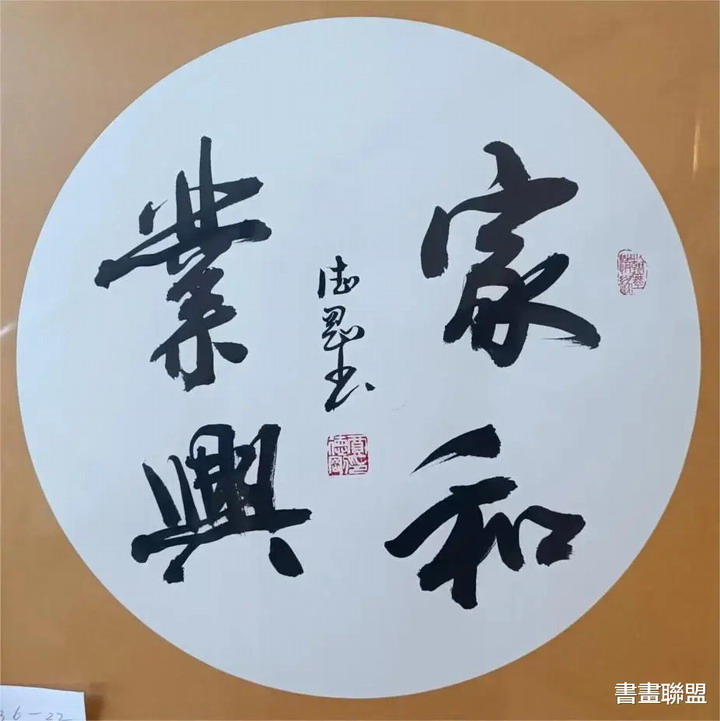 家和
業興
德 书
36-22
書畫聯盟